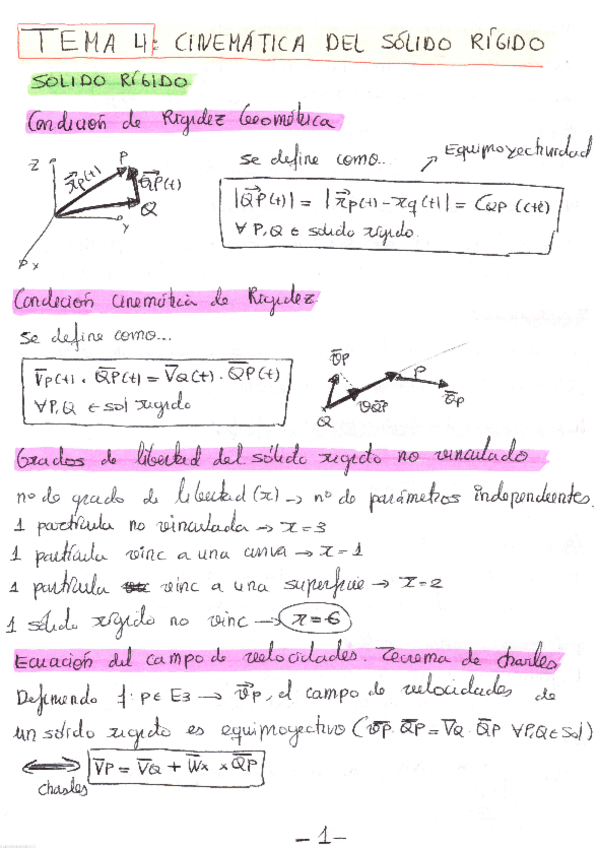 TEMA 4: CINEMÁTICA DEL SÓLIDO RÍGIDO
SOLIDO RÍGIDO
Condición de Rigidez Geométrica
Z
P
x⃗p(t)
Q⃗P(t)
Q
y
x
se define como...
Equiproyectividad
|Q⃗P(t)| = |x⃗p(t) - xq(t)| = CQP (cte)
∀ P,Q ∈ sólido rígido.
Condición cinemática de Rigidez.
se define como...
V̄p(t) · Q̄P(t) = V̄Q(t) · Q̄P(t)
∀P,Q ∈ sol rígido
Q
P
Grados de libertad del sólido rígido no vinculado
nº de grado de libertad (x) → nº de parámetros independientes.
1 partícula no vinculada → x=3
1 partícula vinc a una curva → x=1
1 partícula vinc a una superficie → x=2
1 sólido rígido no vinc → x=6
Ecuación del campo de velocidades. Teorema de Charles
Definiendo f: P ∈ E3 → v⃗p, el campo de velocidades de
un sólido rígido es equiproyectivo (v̄p · Q̄P = V̄Q · Q̄P ∀P,Q ∈ Sol)
⟷ V̄P = V̄Q + W̄x × Q̄P
Chasles
- 1 -